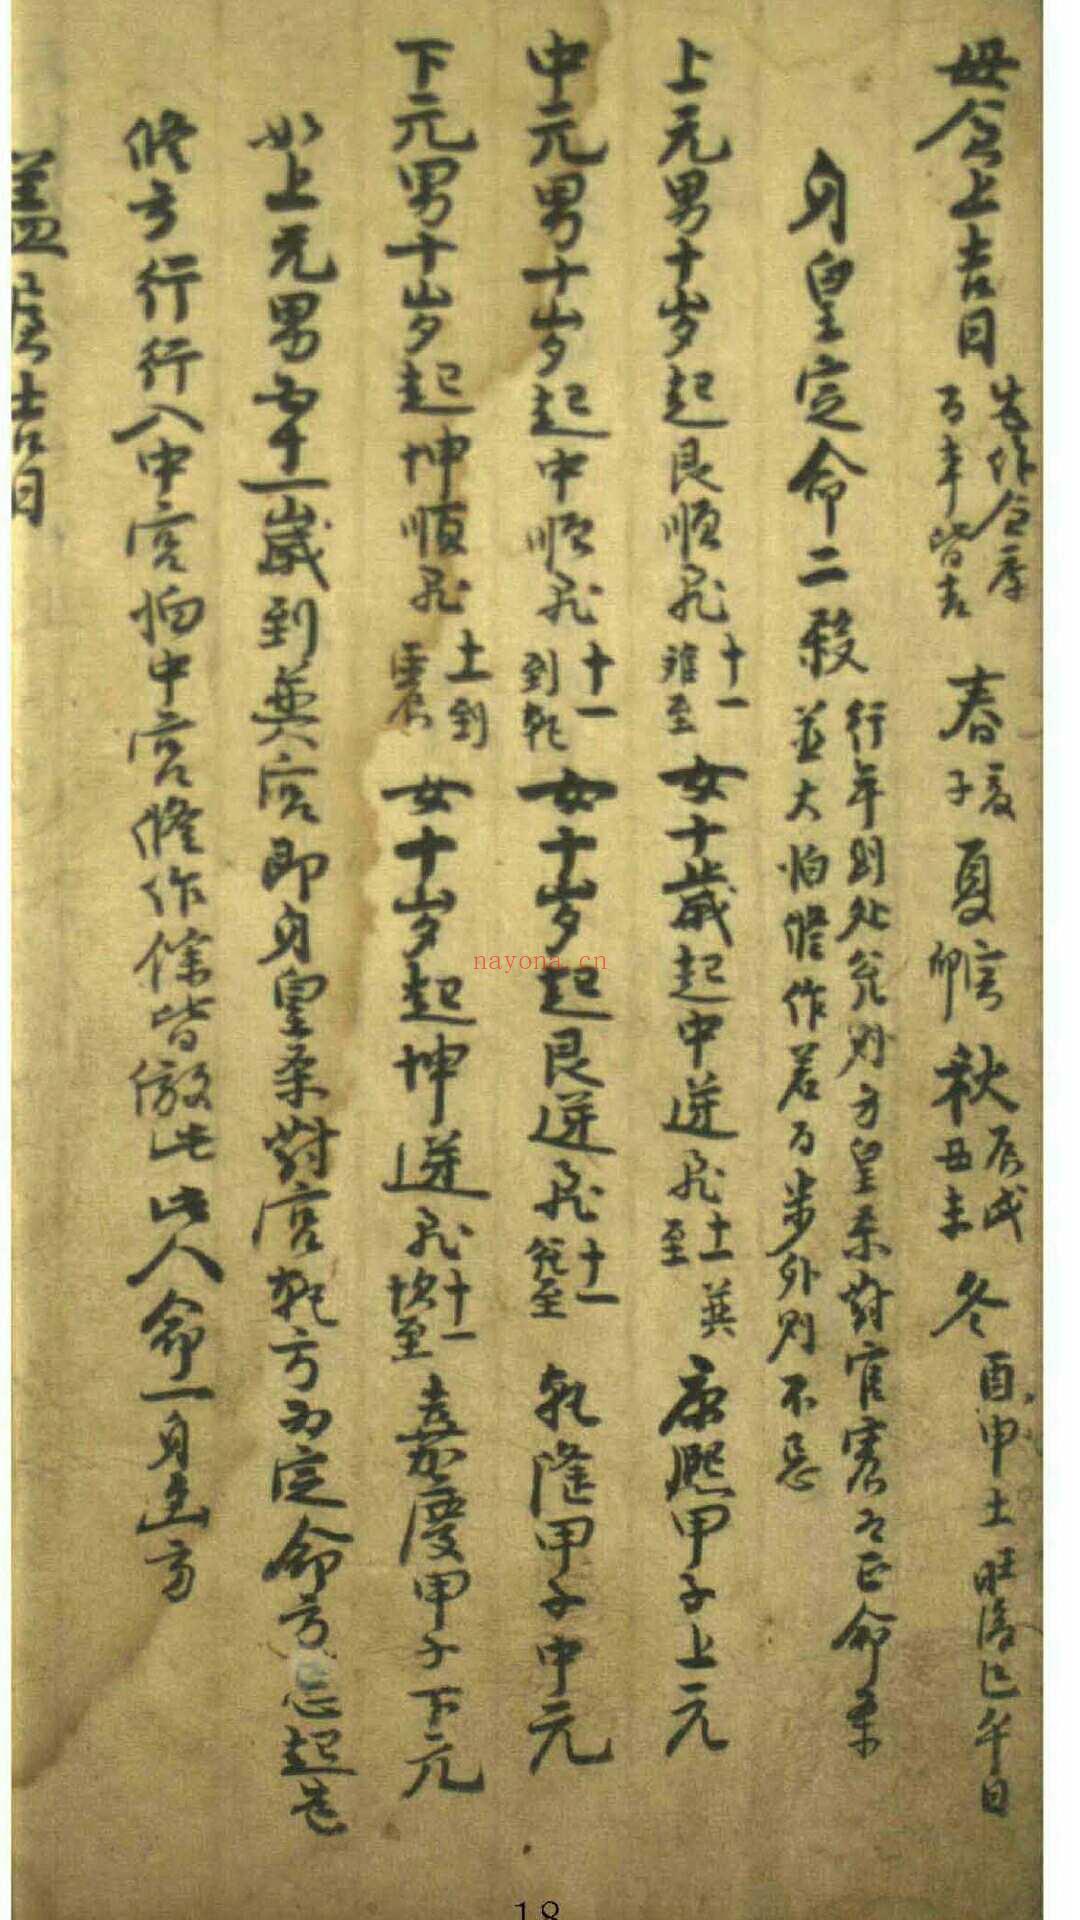 母倉上吉日 百事皆吉 春 亥子 夏 寅卯 秋 辰戌丑未 冬 酉申 土旺後巳午日
身皇定命二殺 行年到处竞则方皇杀對宫定命杀 並大怕修作若百步外则不忌
上元男十岁起艮順飛 十一離至 女十歲起中逆飛 十一至巽 康熙甲子上元
中元男十岁起中順飛 十一到乾 女十岁起艮逆飛 十一兌至 乾隆甲子中元
下元男十岁起坤順飛 十一到震 女十岁起坤逆飛 十一坎至 嘉慶甲子下元
如上元男 一歲到巽宫即身皇杀對宫乾方为定命方忌起造
修方行行入中宫怕中宫修作餘皆倣此 此人命一身迯方
蓋屋吉日
nayona.cn
18